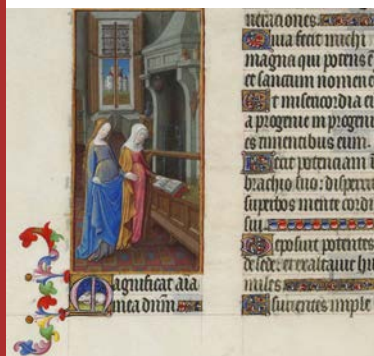 agnificat aīa
mea dn̄m
neraciones.
Quia fecit michi
magna qui potens e
et sanctum nomen e
Et misericordia ei
a progenie in progeni
es timentibus eum.
Fecit potenciam i
brachio suo: dispersit
superbos mente cordi
sui.
Deposuit potentes
de sede: et exaltauit hu
miles
Esurientes imple